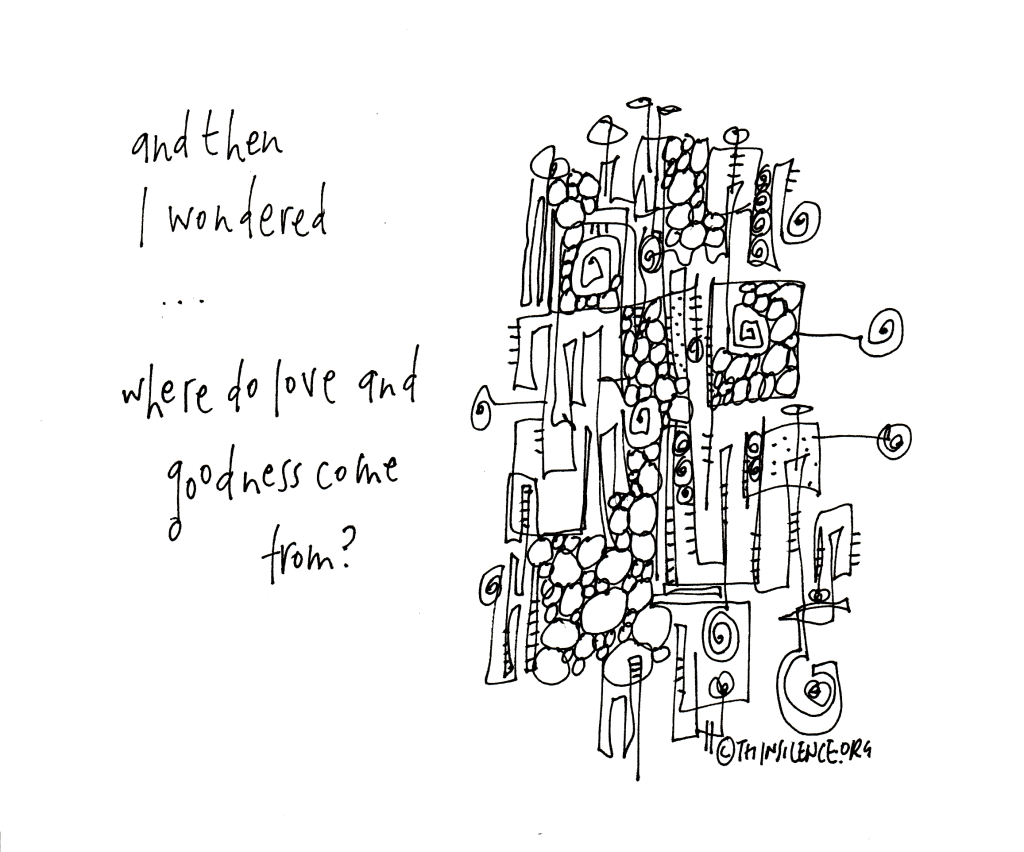 and then
I wondered
...
where do love and
goodness come
from?
©THINSILENCE.ORG